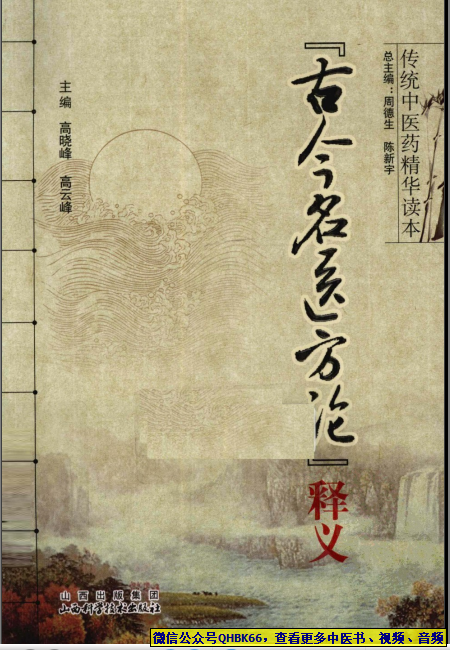 传统中医药精华读本
总主编：周德生 陈新宇
『古今名医方论』
释义
主编 高晓峰 高云峰
山西出版集团
山西科学技术出版社
微信公众号QHBK66，查看更多中医书、视频、音频